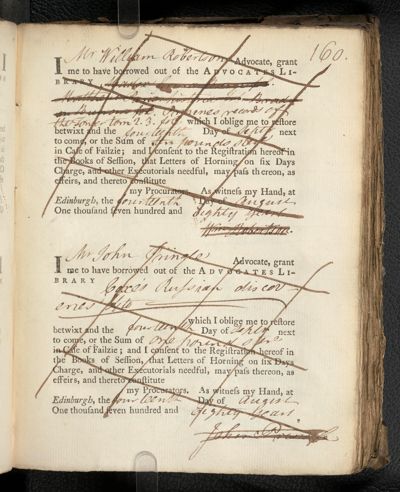 160.
I Mr William Robertson Advocate, grant
me to have borrowed out of the ADVOCATES LI-
BRARY
the Tower tom 2. 3. which I oblige me to reſtore
betwixt and the fourteenth Day of next
to come, or the Sum of pounds
in Caſe of Failzie; and I conſent to the Regiſtration hereof in
the Books of Seſſion, that Letters of Horning on ſix Days
Charge, and other Executorials needful, may paſs thereon, as
effeirs, and thereto conſtitute
my Procurators. As witneſs my Hand, at
Edinburgh, the fourteenth Day of August
One thouſand ſeven hundred and Eighty
Robertson
I Mr John Pringle Advocate, grant
me to have borrowed out of the ADVOCATES LI-
BRARY Coxe's Russian discov
eries
which I oblige me to reſtore
betwixt and the fourteenth Day of next
to come, or the Sum of one pound
in Caſe of Failzie; and I conſent to the Regiſtration hereof in
the Books of Seſſion, that Letters of Horning on ſix Days
Charge, and other Executorials needful, may paſs thereon, as
effeirs, and thereto conſtitute
my Procurators. As witneſs my Hand, at
Edinburgh, the fourteenth Day of August
One thouſand ſeven hundred and Eighty
John Pringle